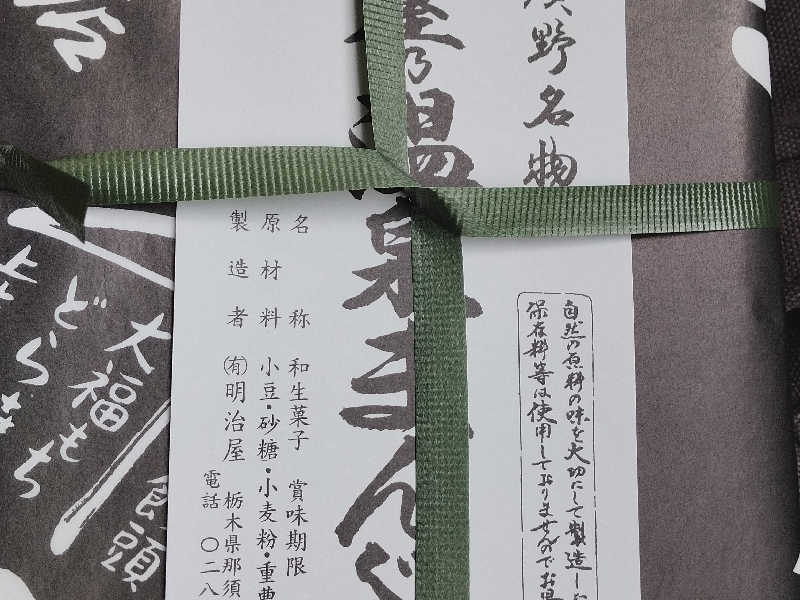 野名物
自然の原料の味を大切にして製造し
保存料等は使用しておりませんのでお
乃温泉まんじ
名称 和生菓子 賞味期限
原材料 小豆・砂糖・小麦粉・重曹
製造者 ㈲明治屋 栃木県那須
電話 〇二八
饅頭
大福も
どらきち